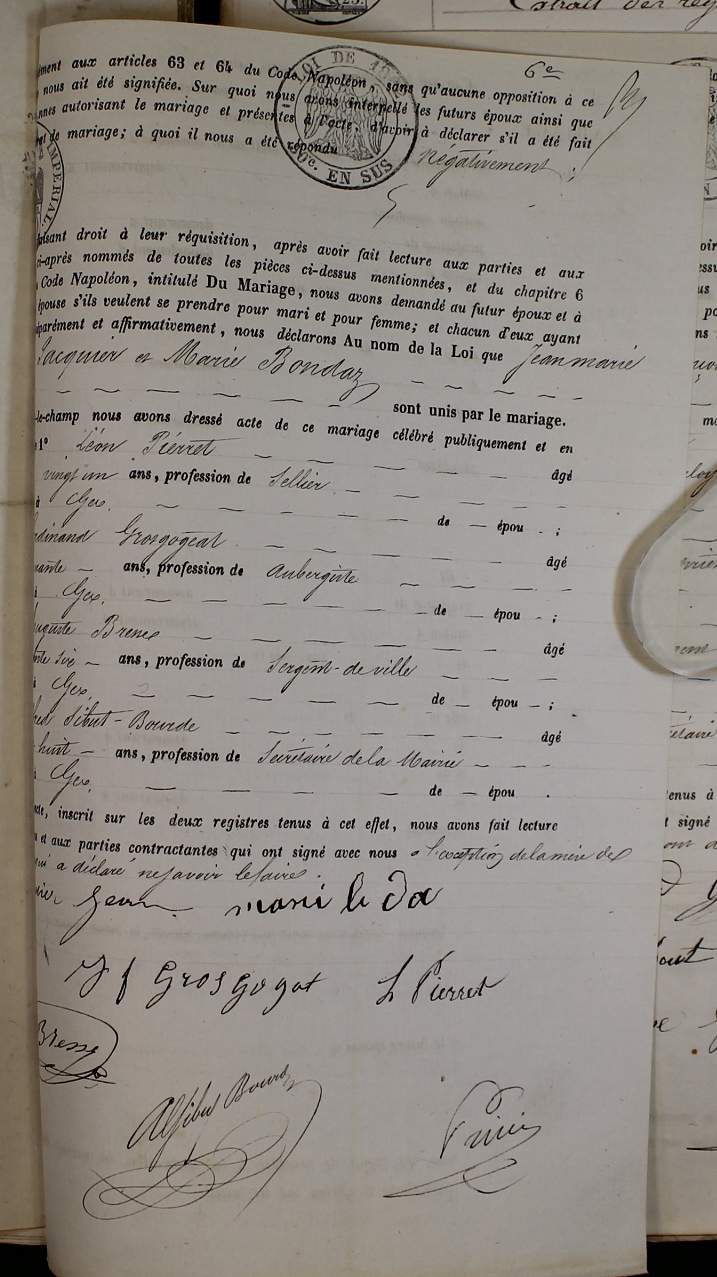 Extrait des reg
6e
ément aux articles 63 et 64 du Code Napoléon, sans qu'aucune opposition à ce
nous ait été signifiée. Sur quoi nous avons interpellé les futurs époux ainsi que
nnes autorisant le mariage et présentes à l'acte, d'avoir à déclarer s'il a été fait
at de mariage; à quoi il nous a été répondu négativement ;
LOI DE
10e. EN SUS
IMPERIAL
faisant droit à leur réquisition, après avoir fait lecture aux parties et aux
ci-après nommés de toutes les pièces ci-dessus mentionnées, et du chapitre 6
Code Napoléon, intitulé Du Mariage, nous avons demandé au futur époux et à
épouse s'ils veulent se prendre pour mari et pour femme; et chacun d'eux ayant
éparément et affirmativement, nous déclarons Au nom de la Loi que Jean marie
Jacquier et Marie Bondaz
sont unis par le mariage.
-le-champ nous avons dressé acte de ce mariage célébré publiquement et en
1° Léon Pierret âgé
vingt un ans, profession de Sellier
à Gex. de — épou - ;
dinand Grosgogeat âgé
rante - ans, profession de Aubergiste
à Gex. de — épou - ;
uguste Bresse âgé
nte six - ans, profession de Sergent-de ville
à Gex. de — épou - ;
fred Sibut-Bourde âgé
huit - ans, profession de Secrétaire de la Mairie
à Gex. de — épou .
acte, inscrit sur les deux registres tenus à cet effet, nous avons fait lecture
et aux parties contractantes qui ont signé avec nous à l'exception de la mère de
qui a déclaré ne savoir le faire.
Jean mari
Grosgogat L Pierret
Bresse
Alf Sibut Bourde